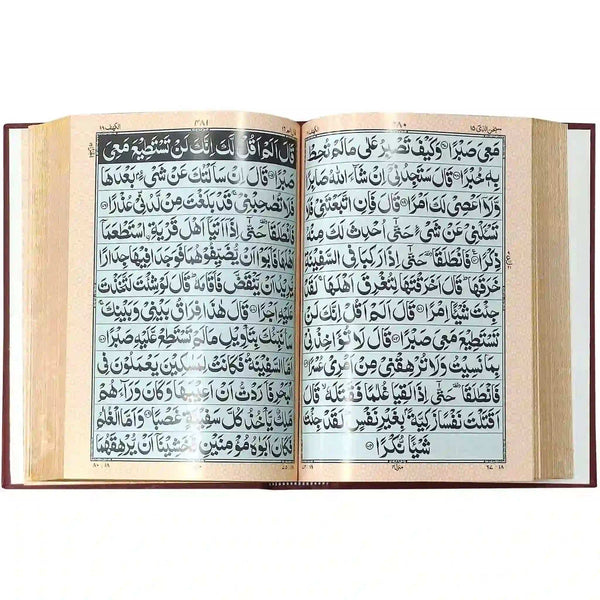 ٣٨٠
سبحن الذی ١٥
مَعِيَ صَبْرًا وَكَيْفَ تَصْبِرُ عَلٰى مَا لَمْ تُحِطْ
بِهٖ خُبْرًا قَالَ سَتَجِدُنِيْٓ اِنْ شَآءَ اللهُ صَابِرًا
وَّلَآ اَعْصِيْ لَكَ اَمْرًا قَالَ فَاِنِ اتَّبَعْتَنِيْ فَلَا
تَسْـَٔلْنِيْ عَنْ شَيْءٍ حَتّٰٓى اُحْدِثَ لَكَ مِنْهُ
ذِكْرًا فَانْطَلَقَا حَتّٰٓى اِذَا رَكِبَا فِي السَّفِيْنَةِ
خَرَقَهَا قَالَ اَخَرَقْتَهَا لِتُغْرِقَ اَهْلَهَا لَقَدْ
جِئْتَ شَيْـًٔا اِمْرًا قَالَ اَلَمْ اَقُلْ اِنَّكَ لَنْ
تَسْتَطِيْعَ مَعِيَ صَبْرًا قَالَ لَا تُؤَاخِذْنِيْ
بِمَا نَسِيْتُ وَلَا تُرْهِقْنِيْ مِنْ اَمْرِيْ عُسْرًا
فَانْطَلَقَا حَتّٰٓى اِذَا لَقِيَا غُلٰمًا فَقَتَلَهٗ قَالَ
اَقَتَلْتَ نَفْسًا زَكِيَّةً بِغَيْرِ نَفْسٍ لَقَدْ جِئْتَ
شَيْـًٔا نُّكْرًا
٣٨١
الكهف ١٨
قَالَ اَلَمْ اَقُلْ لَّكَ اِنَّكَ لَنْ تَسْتَطِيْعَ مَعِيَ
صَبْرًا قَالَ اِنْ سَاَلْتُكَ عَنْ شَيْءٍۭ بَعْدَهَا
فَلَا تُصٰحِبْنِيْ قَدْ بَلَغْتَ مِنْ لَّدُنِّيْ عُذْرًا
فَانْطَلَقَا حَتّٰٓى اِذَآ اَتَيَآ اَهْلَ قَرْيَةِ اسْتَطْعَمَآ
اَهْلَهَا فَاَبَوْا اَنْ يُّضَيِّفُوْهُمَا فَوَجَدَا فِيْهَا جِدَارًا
يُّرِيْدُ اَنْ يَّنْقَضَّ فَاَقَامَهٗ قَالَ لَوْ شِئْتَ لَتَّخَذْتَ
عَلَيْهِ اَجْرًا قَالَ هٰذَا فِرَاقُ بَيْنِيْ وَبَيْنِكَ
سَاُنَبِّئُكَ بِتَاْوِيْلِ مَا لَمْ تَسْتَطِعْ عَّلَيْهِ صَبْرًا
اَمَّا السَّفِيْنَةُ فَكَانَتْ لِمَسٰكِيْنَ يَعْمَلُوْنَ فِي
الْبَحْرِ فَاَرَدْتُّ اَنْ اَعِيْبَهَا وَكَانَ وَرَآءَهُمْ
مَّلِكٌ يَّاْخُذُ كُلَّ سَفِيْنَةٍ غَصْبًا وَاَمَّا الْغُلٰمُ
فَكَانَ اَبَوٰهُ مُؤْمِنَيْنِ فَخَشِيْنَآ اَنْ يُّرْهِقَهُمَا